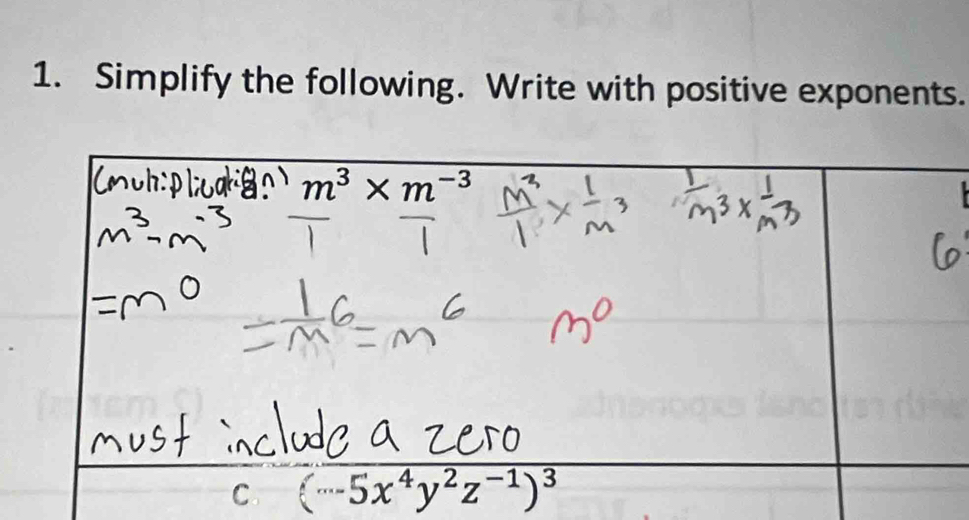 1. Simplify the following. Write with positive exponents.
(multiplication) m³ × m⁻³ m³/1 × 1/m³ 1/m³ × 1/m³
m³-m⁻³ 1 1
=m⁰ = 1/m⁶ = m⁶ m⁰ 6
must include a zero
c. (-5x⁴y²z⁻¹)³